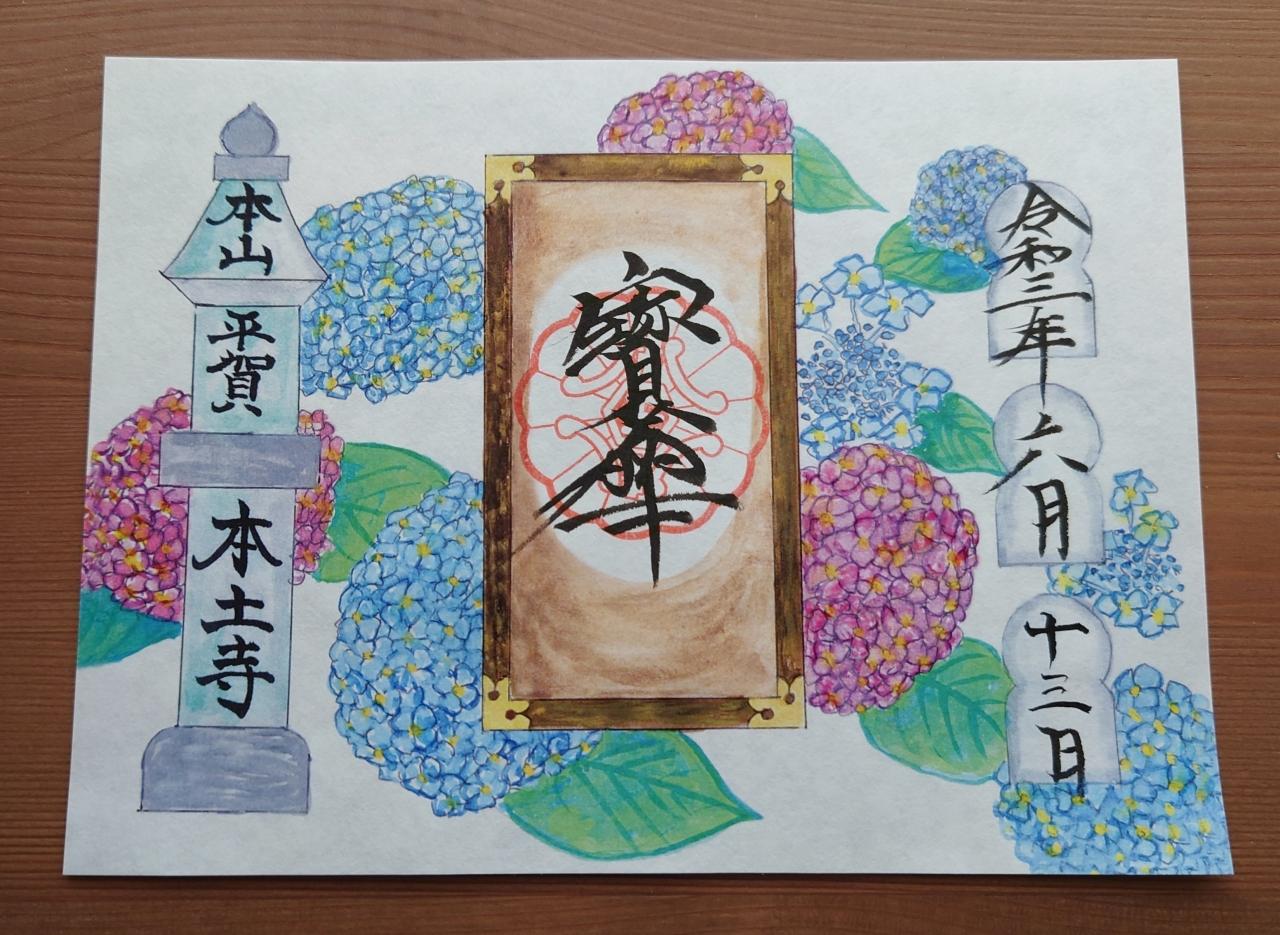 令和三年
六月
十三日
寳
本山
平賀
本土寺